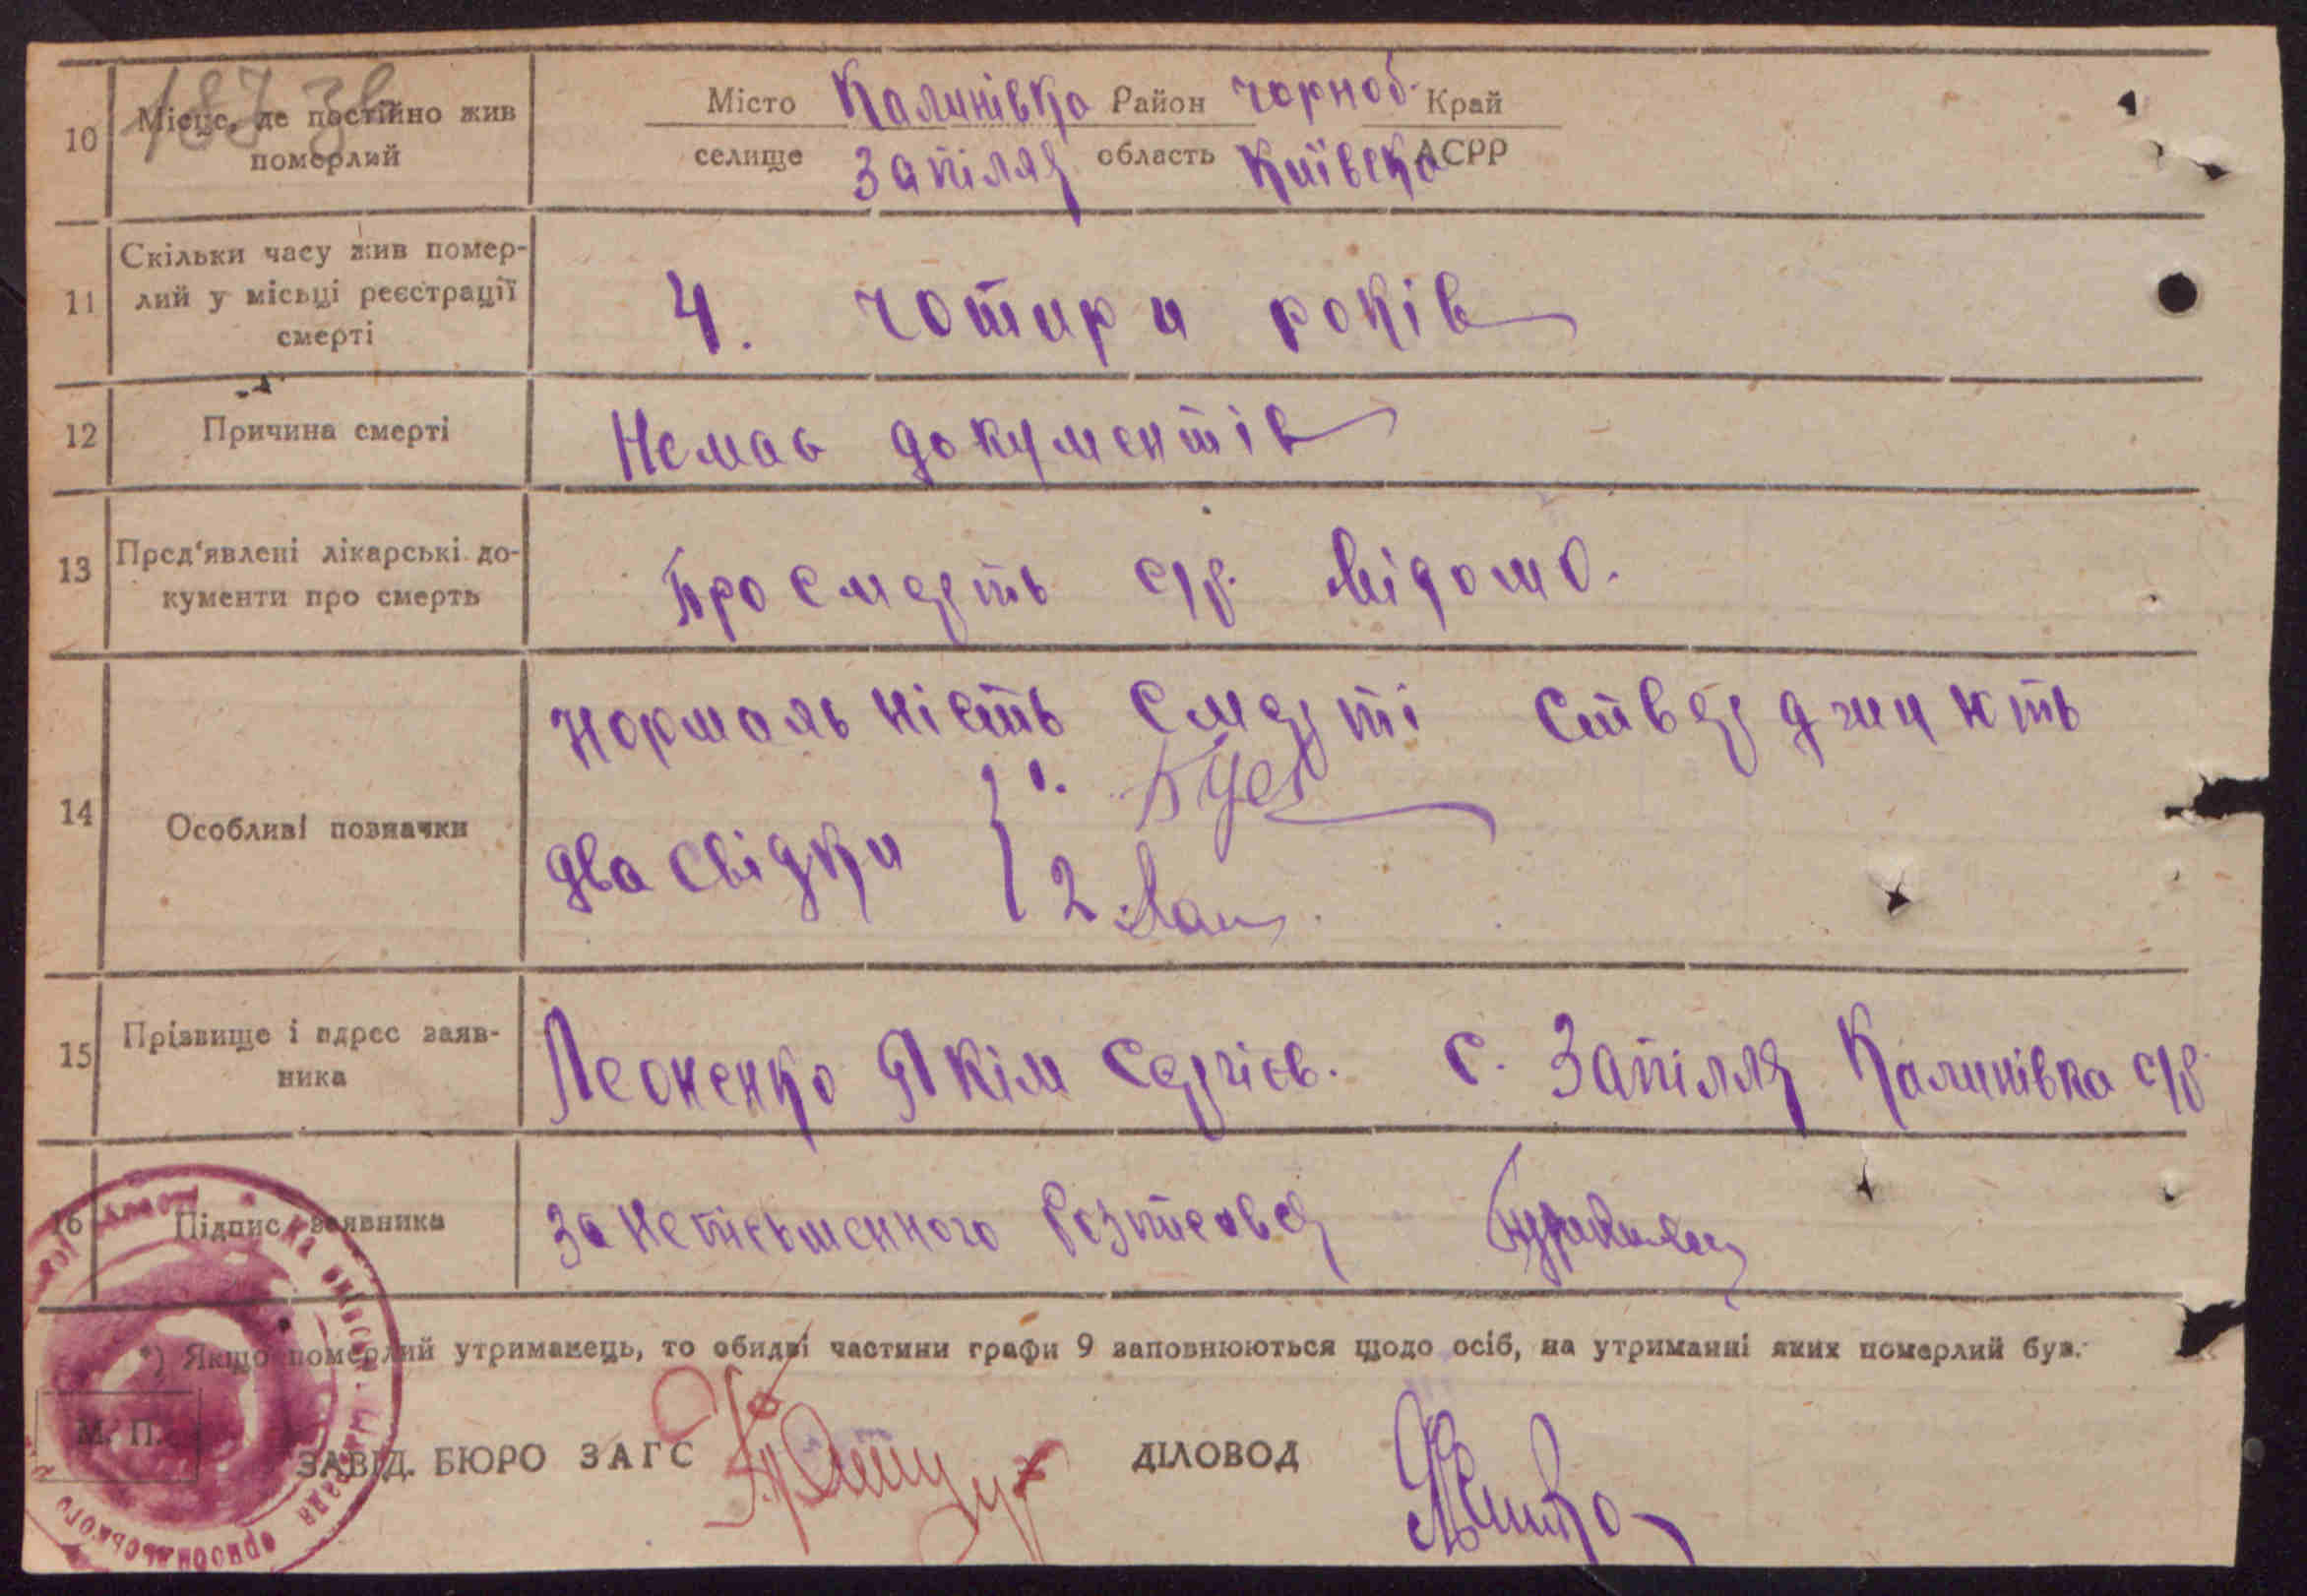 187 зв
10 Місце, де постійно жив Місто Калинівка Район Чорноб. Край
померлий селище Запілля область Київска АСРР
11 Скільки часу жив помер-
лий у місьці реєстрації 4. чотири років
смерті
12 Причина смерті Немає документів
13 Пред'явлені лікарські до- Про смерть с/р. відомо.
кументи про смерть
Нормальність смерті стверджують
1.
14 Особливі позначки два свідки
2
15 Прізвище і адрес заяв- Леоненко Якім Сергієв. с. Запілля Калинівка с/р.
ника
16 Підпис заявника за неписьменного розписався
*) Якщо померлий утриманець, то обидві частини графи 9 заповнюються щодо осіб, на утриманні яких померлий був.
М. П.
ЗАВІД. БЮРО ЗАГС ДІЛОВОД